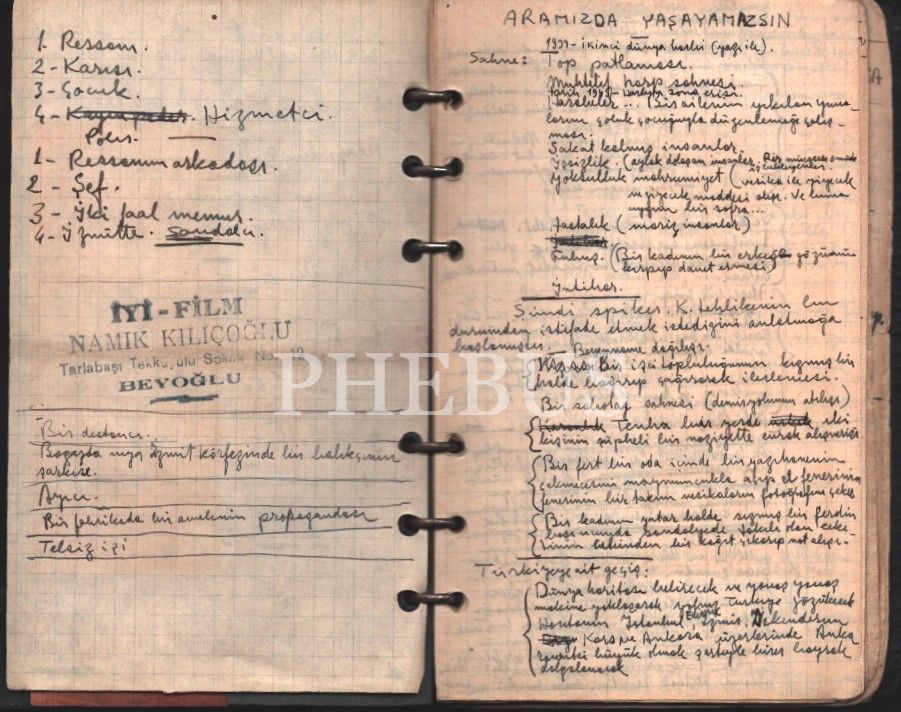 1- Ressam.
2- Karısı.
3- Çocuk.
4- Hizmetci.
Polis.
1- Ressamın arkadaşı.
2- Şef.
3- İki faal memur.
4- İzmitte. Sandalcı.
İYİ-FİLM
NAMIK KILIÇOĞLU
Tarlabaşı Tekku ulu Sokak No. 12
BEYOĞLU
Bir destancı.
Boğazda veya İzmit körfezinde bir balıkçının
şarkısı.
Ayıcı.
Bir fabrikada bir amelenin propagandası
Telsiz işi
ARAMIZDA YAŞAYAMAZSIN
1939- İkinci dünya harbi (yazı ile).
Sahne: Top patlaması.
Muhtelif harp sahnesi.
Tarih 1945- Harbin sona erişi.
Harabeler... Bir ailenin yıkılan yuva-
larını çoluk çocuğuyla düzenlemeğe çalış-
ması.
Sakat kalmış insanlar.
İşsizlik. (aylak dolaşan insanlar.
Yoksulluk mahrumiyet (vesika ile yiyecek
ve giyecek maddesi alışı. Ve buna
uygun bir sofra...
Hastalık (mariz insanlar)
Fuhuş. (Bir kadının bir erkeğe gözünü
kırpıp davet etmesi)
İntihar.
Şimdi spiker. K. tehlikenin bu
durumdan istifade etmek istediğini anlatmağa
başlamıştır. Beyanname dağılışı.
Bir işçi topluluğunun kızmış bir
halde bağırıp çağırarak ilerlemesi.
Bir sabotaj sahnesi (demiryolunun atılışı)
Tenha bir yerde iki
kişinin şüpheli bir vaziyette evrak alışverişi
Bir fert bir oda içinde bir yazıhanenin
çekmecesini maymuncukla açıp el fenerinin
fenerinin bir takım vesikaların fotoğrafını çeker
Bir kadının yatar halde sızmış bir ferdin
baş ucunda sandalyede takılı olan ceke
tinin cebinden bir kağıt çıkarıp not alışı-
Türkiyeye ait geçiş.
Dünya haritası belirecek ve yavaş yavaş
makine yaklaşarak yalnız Türkiye gözükecek
Haritanın İstanbul, İzmir, İskenderun
Kars ve Ankara üzerlerinde Anka
radaki büyük olmak şartiyle birer bayrak
dalgalanacak
PHEBUS